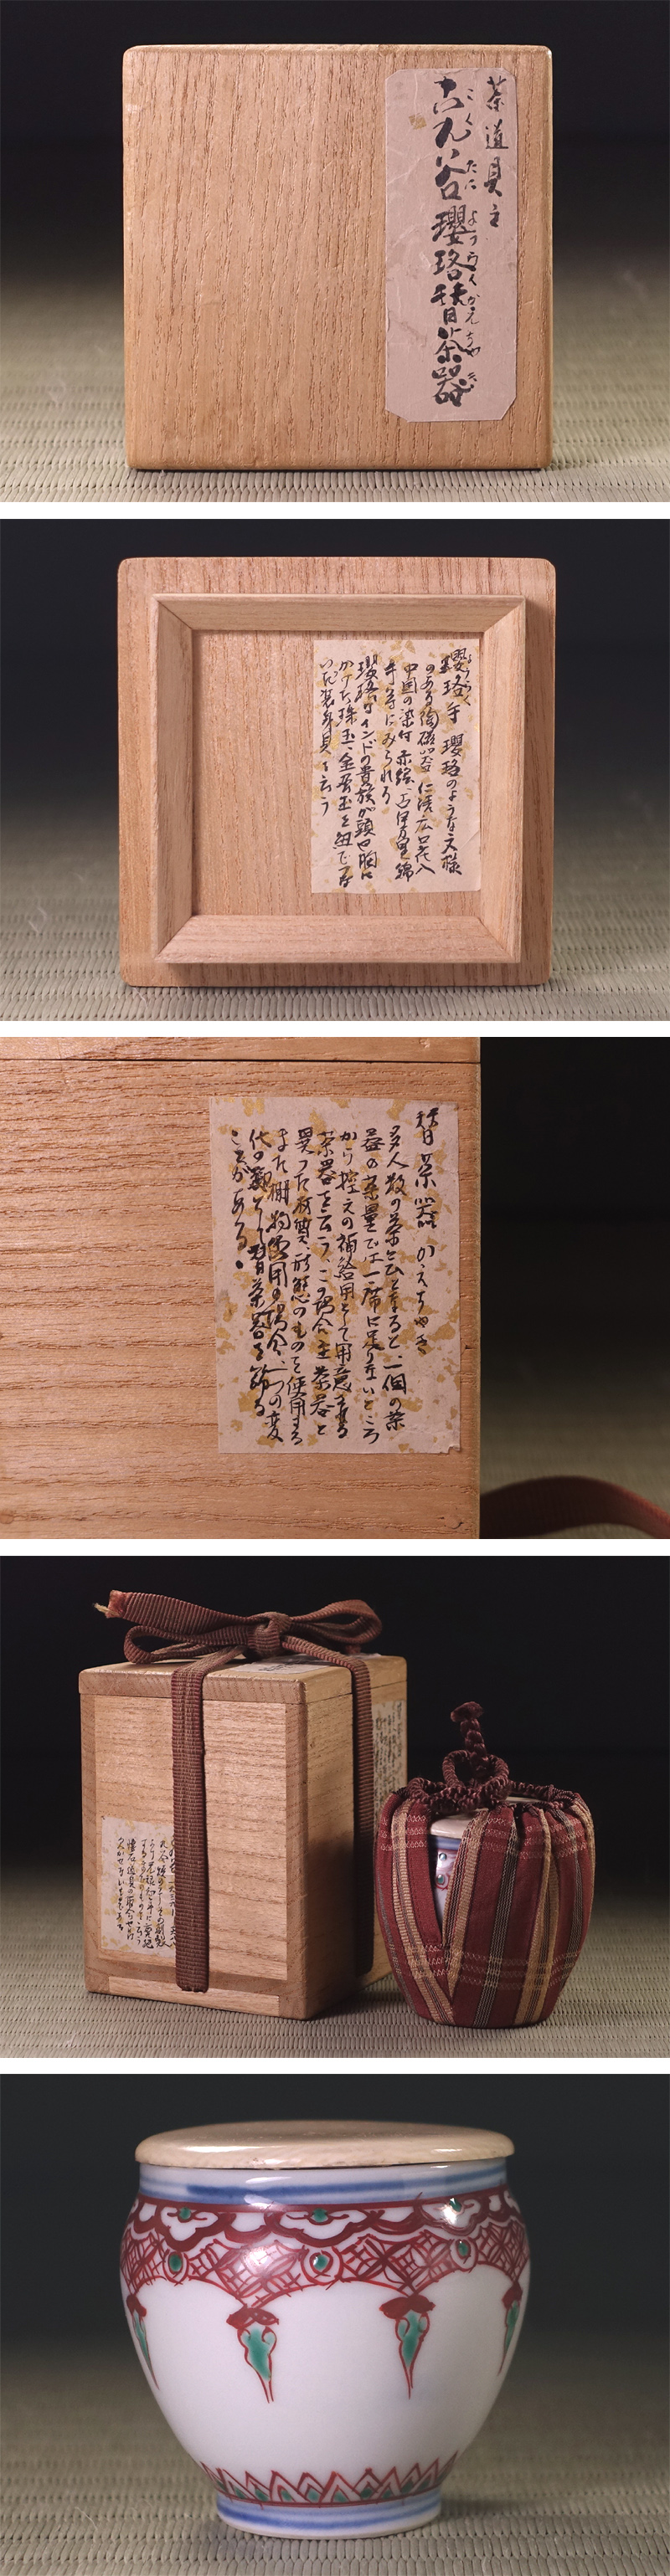 茶道具主
古九谷瓔珞替茶器
こくたにようらくかえちゃき
瓔珞手 瓔珞のような文様
ようらく
のある陶磁器 仁清広口花入
中国の染付 赤絵、古伊万里錦
手等にみられる
瓔珞はインドの貴族が頭や胸に
かけた珠玉、金属玉を紐でつな
いだ装身具を云う
替茶器 かえちゃき
多人数の茶会ともなると、一個の茶
器の茶量では一席に足りないところ
から控えの補給用として用意する
茶器を云う、この場合主茶器と
異った材質、形態のものを使用する
また棚物使用の場合、一つの変
代の飾りとして替茶器を飾る
ことがある。